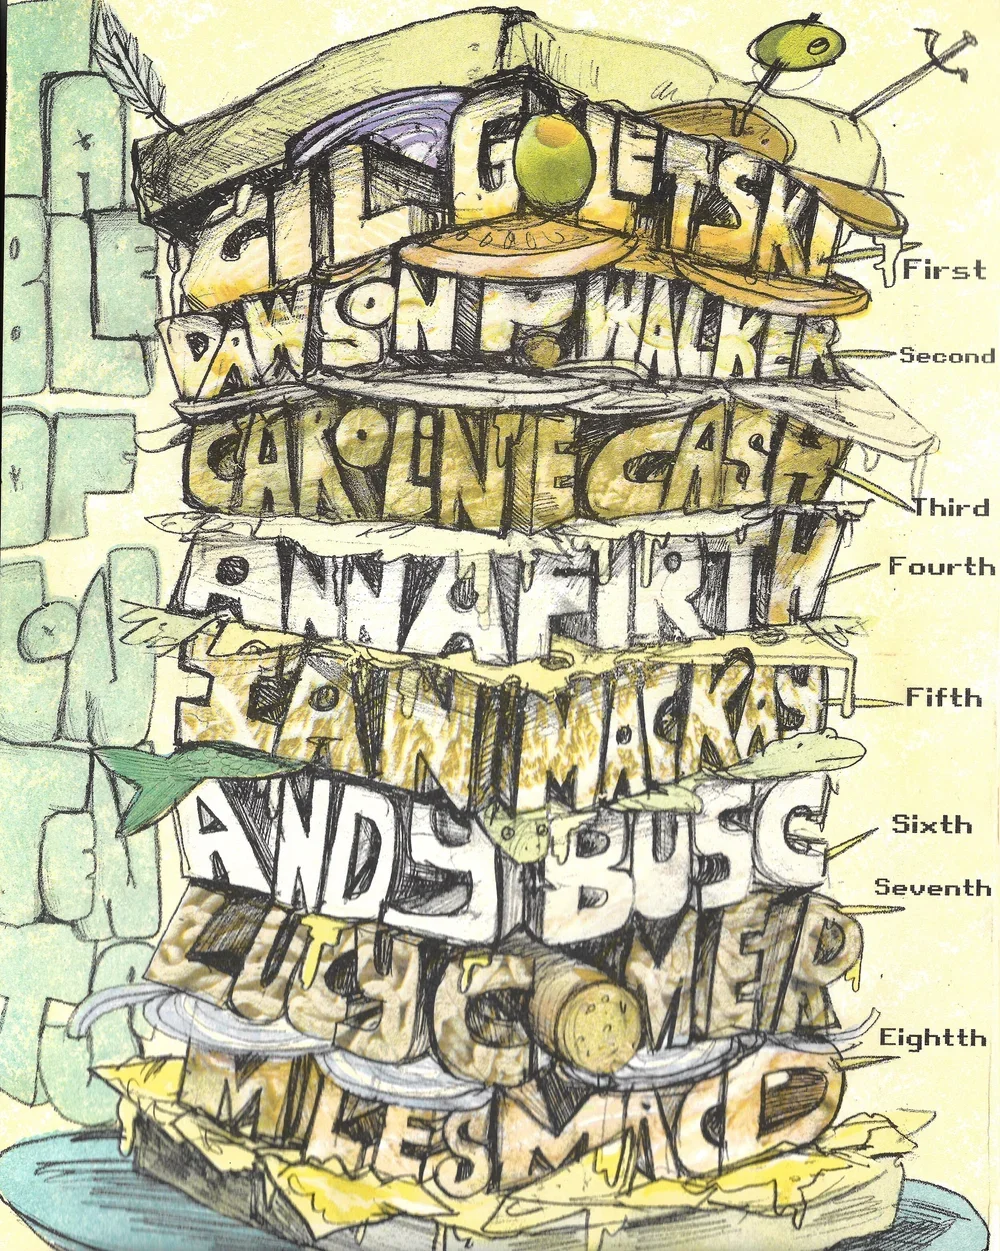 CIL GOLETSKI
First
DAWSON P. WALKER
Second
CAROLINE CASH
Third
ANNA FIRTH
Fourth
IAN MACKAY
Fifth
ANDY BUSC
Sixth
LUCY COMER
Seventh
MILES MACD
Eightth
TABLE
OF
CON
TEN
TS